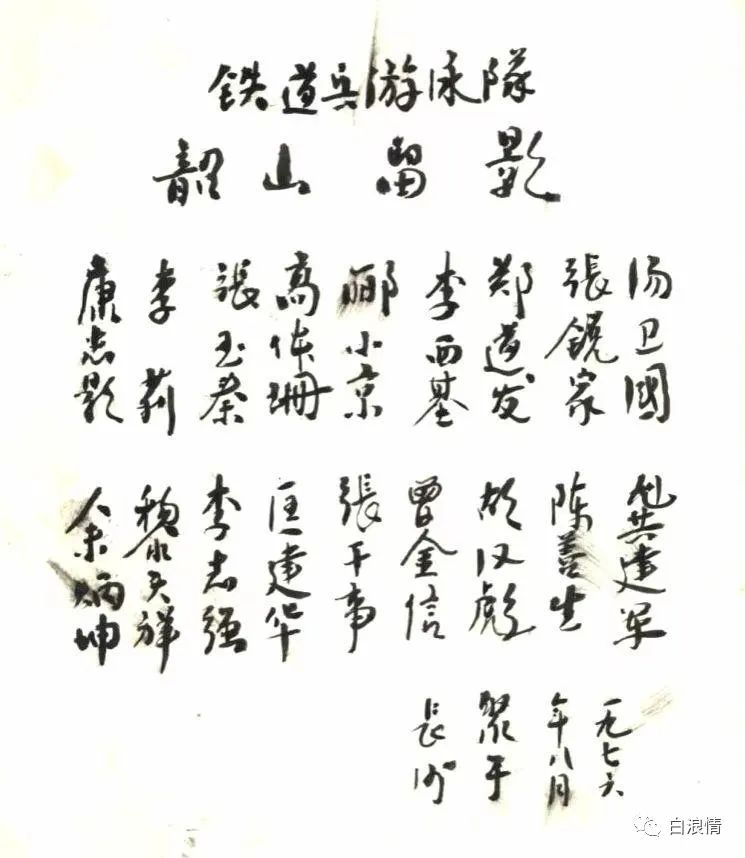 铁道兵游泳隊
韶山留影
汤卫國
張锐家
郑道发
李西基
郦小京
高体珊
張玉秦
李莉
康志影
龚建军
陈善生
胡汉彪
曾金信
張干事
匡建华
李志强
黎天祥
余炳坤
一九七六
年八月
聚于
長沙
白浪情